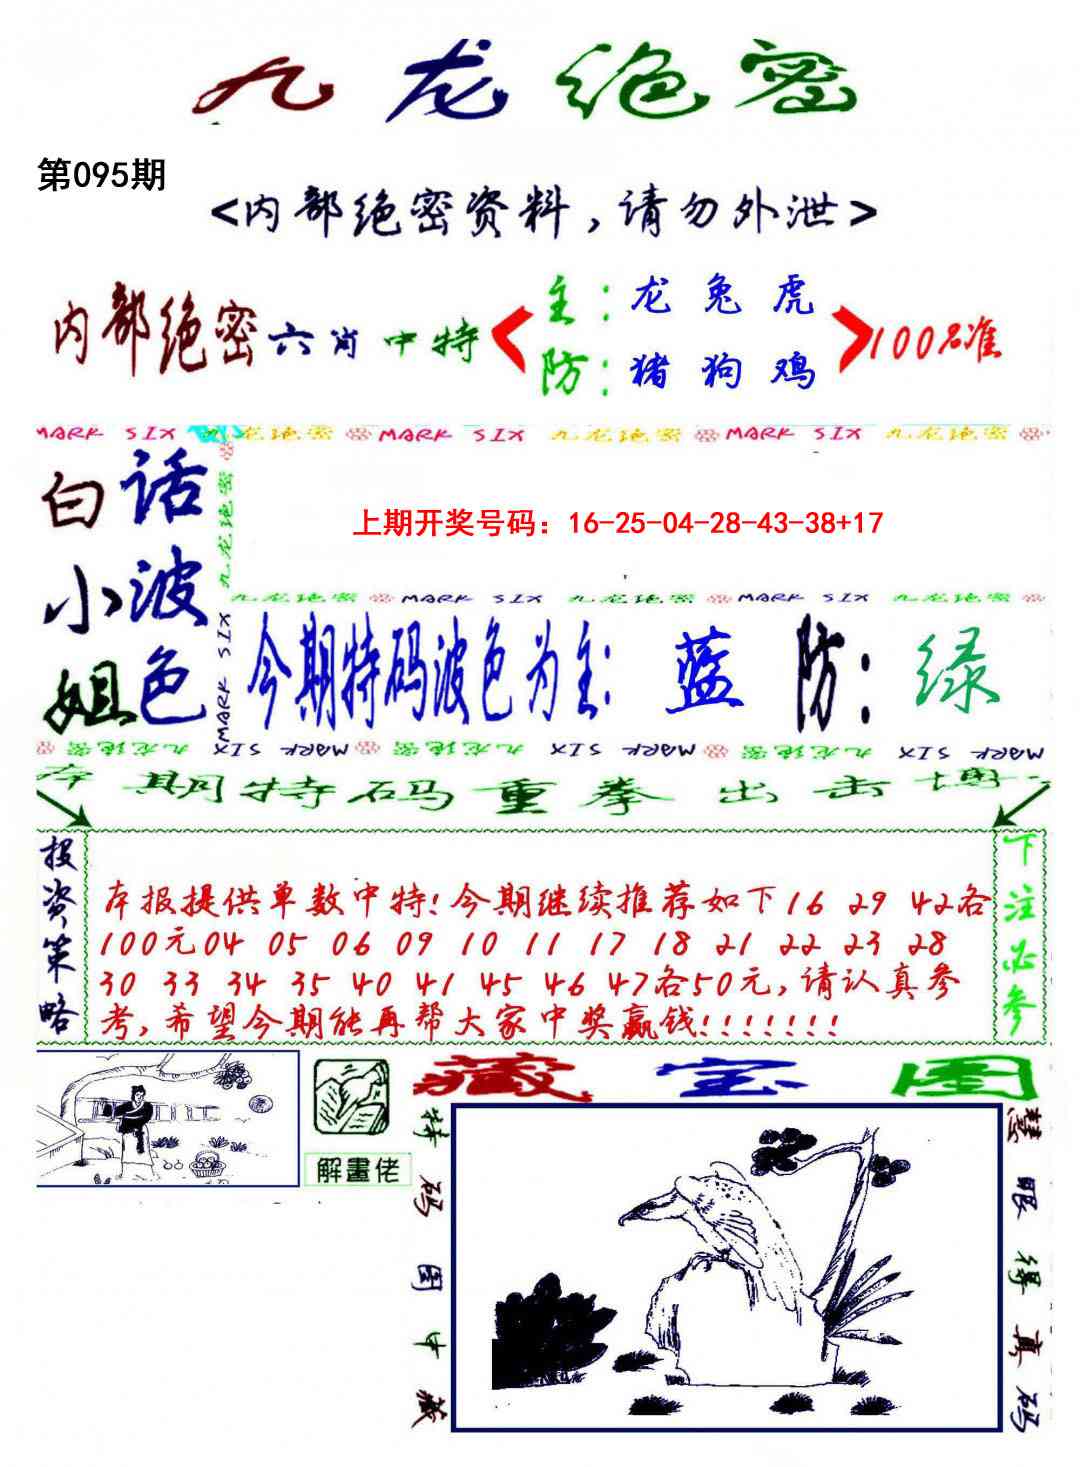 九龙绝密
第095期
<内部绝密资料,请勿外泄>
内部绝密六肖中特
主:龙 兔 虎
防:猪 狗 鸡
100%准
MARK SIX 九龙绝密 MARK SIX 九龙绝密 MARK SIX 九龙绝密
白话
小波
姐色
九龙绝密
MARK SIX
上期开奖号码：16-25-04-28-43-38+17
九龙绝密 MARK SIX 九龙绝密 MARK SIX 九龙绝密
今期特码波色为主: 蓝 防: 绿
九龙绝密 MARK SIX 九龙绝密 MARK SIX 九龙绝密 MARK SIX
本期特码重拳出击博
投资策略
本报提供单数中特!今期继续推荐如下16 29 42各
100元04 05 06 09 10 11 17 18 21 22 23 28
30 33 34 35 40 41 45 46 47各50元,请认真参
考,希望今期能再帮大家中奖赢钱!!!!!!!
下注必参
解畫佬
藏宝图
特码图中藏
慧眼得真码